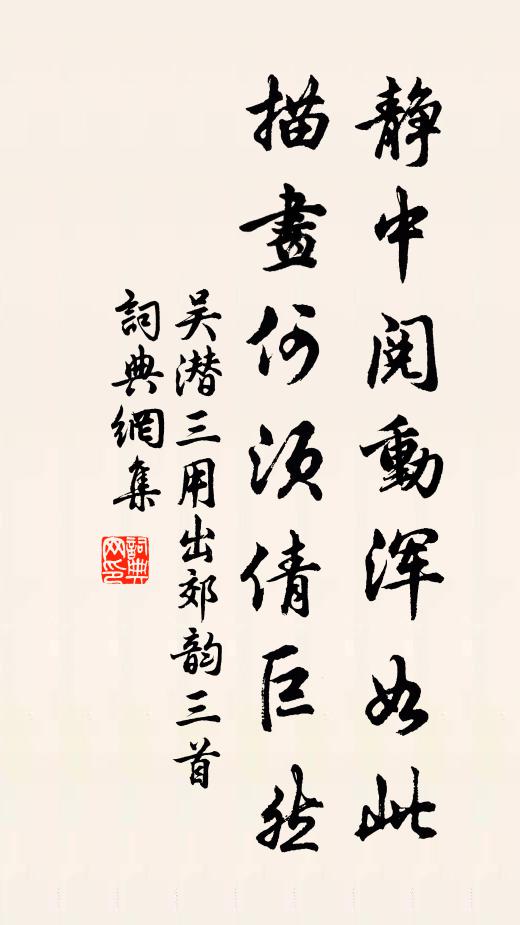 静中閱動浑如此
描畫何須倩巨然
吴潜三用出郊韵三首
詞典網集
詞典网印